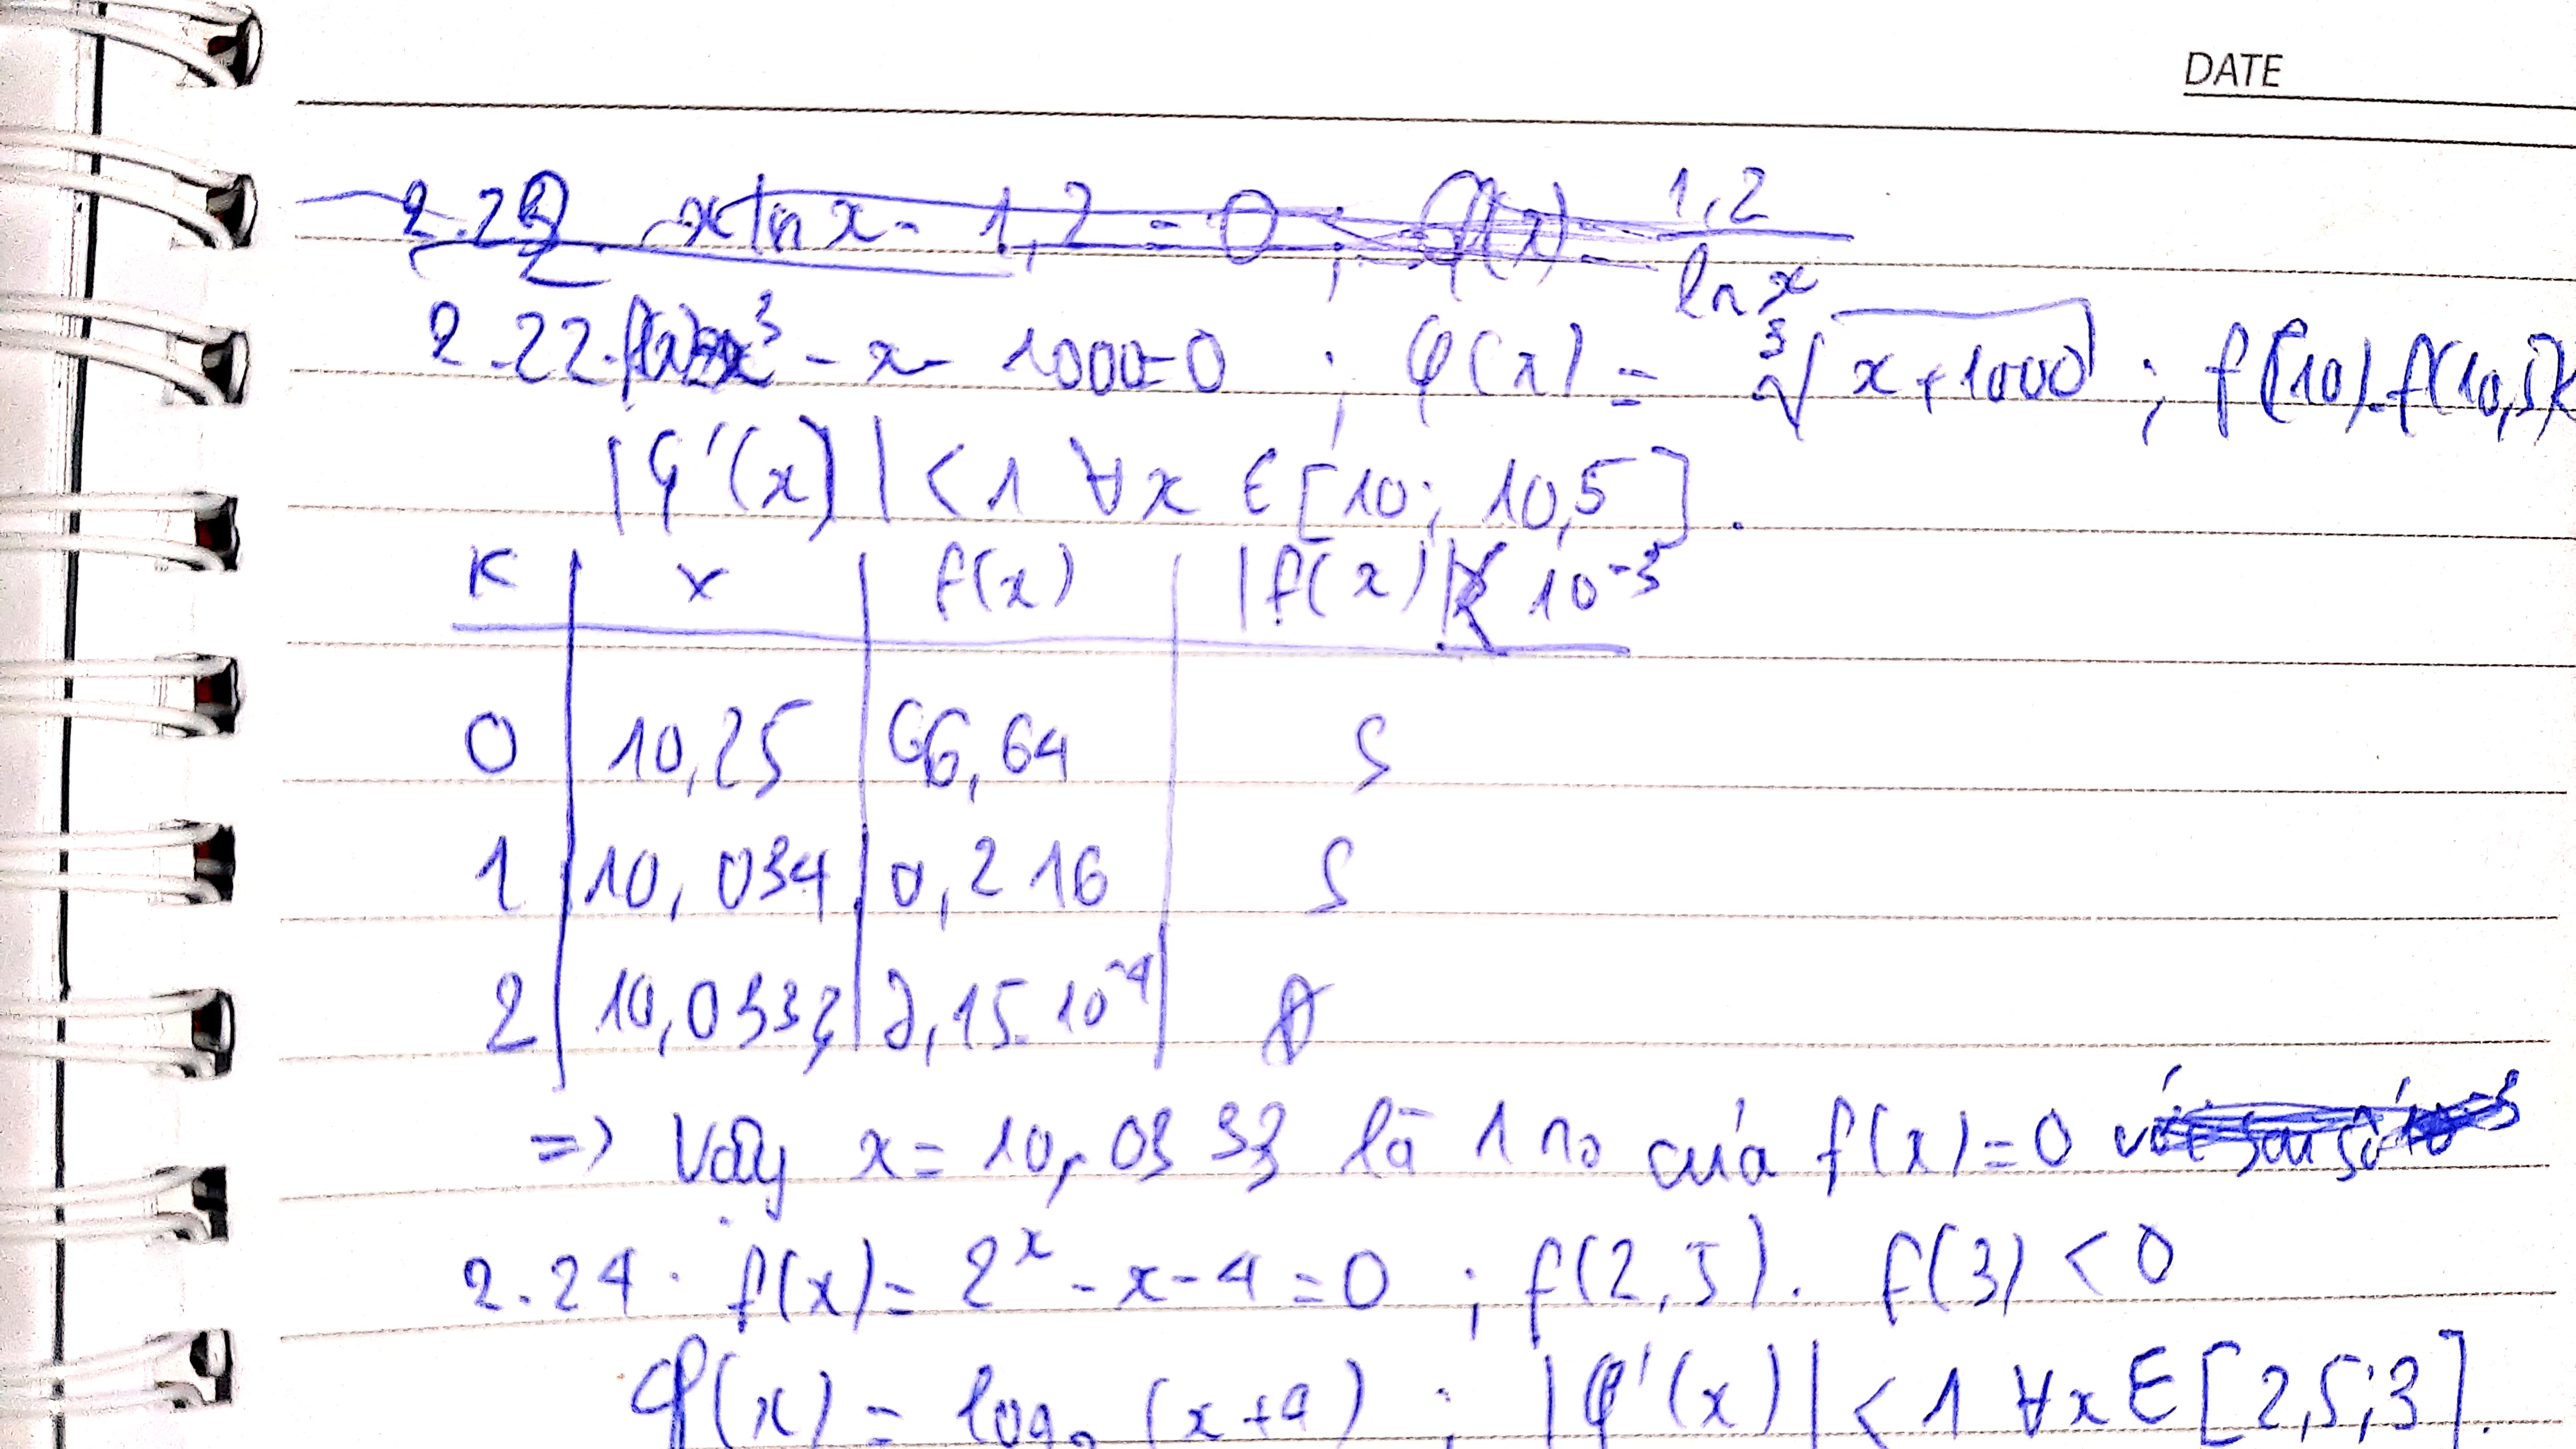 DATE
2.22. x ln x - 1,2 = 0 ; φ(x) = 1,2 / ln x
2.22. f(x) = x³ - x - 1000 = 0 ; φ(x) = ³√(x + 1000) ; f(10).f(10,5)<
|φ'(x)| < 1 ∀x ∈ [10; 10,5].
K | x | f(x) | |f(x)| < 10⁻³
0 | 10,25 | 66,64 | S
1 | 10,034 | 0,216 | S
2 | 10,0333 | 2,15.10⁻⁴ | Đ
=> Vậy x = 10,0333 là 1 no của f(x) = 0
2.24. f(x) = 2ˣ - x - 4 = 0 ; f(2,5). f(3) < 0
φ(x) = log₂ (x+4) ; |φ'(x)| < 1 ∀x ∈ [2,5;3].